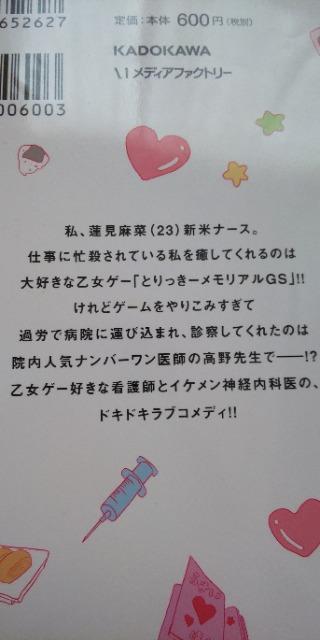 652627
006003
定価:本体 600円(税別)
KADOKAWA
メディアファクトリー
私、蓮見麻菜(23)新米ナース。
仕事に忙殺されている私を癒してくれるのは
大好きな乙女ゲー「とりっきーメモリアルGS」!!
けれどゲームをやりこみすぎて
過労で病院に運び込まれ、診察してくれたのは
院内人気ナンバーワン医師の高野先生で——!?
乙女ゲー好きな看護師とイケメン神経内科医の、
ドキドキラブコメディ!!